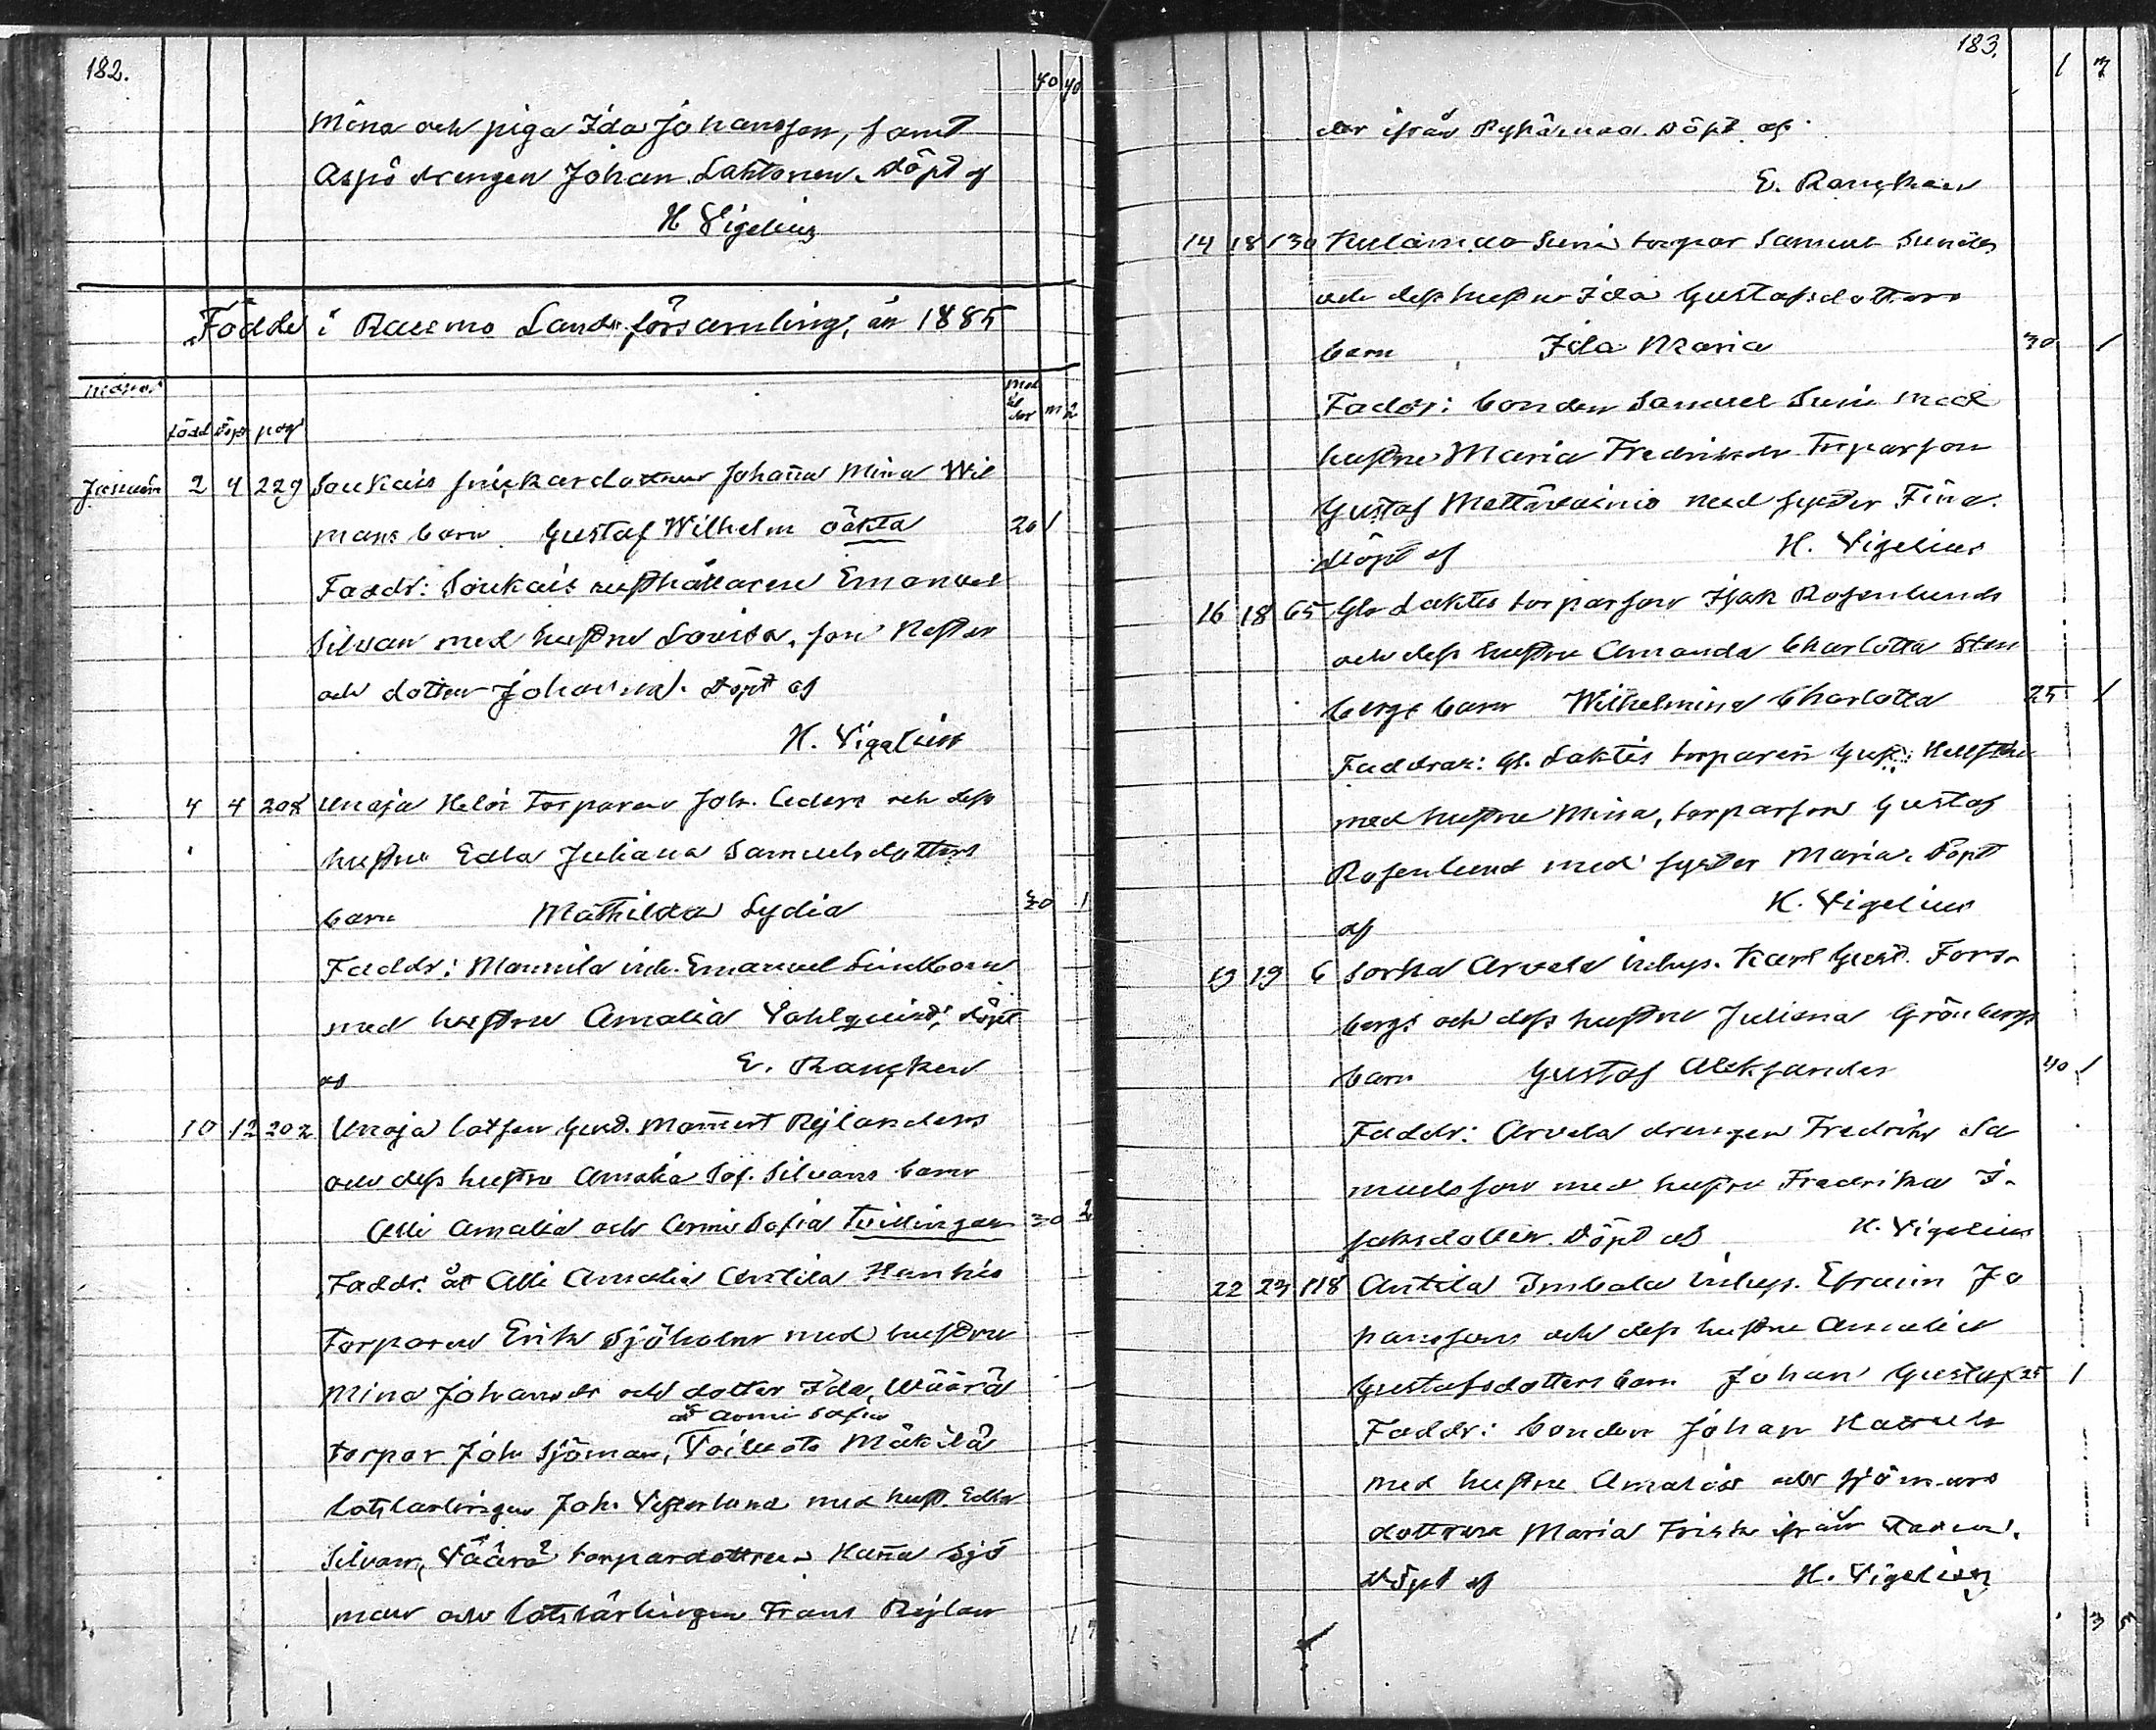 182.
40 40
Mina och piga Ida Johansson, samt
Aspö drengen Johan Laktonen. Döpt af
H Vigelius
Födde i Raumo Landsförsamling, år 1885
född döpt pag
mod ål der m q
Januari 2 4 229 Soukais snickardottren Johana Mina Wil
mans barn Gustaf Wilhelm oäkta 20 1
Faddr: Soukais rusthållaren Emanuel
Silvan med hustru Lovisa, son Nestor
och dotter Johanna. Döpt af
H. Vigelius
4 4 208 Unaja Heloi Torparen Joh. Ceders och dess
hustru Edla Juliana Samuelsdotters
barn Mathilda Lydia 30 1
Faddr: Mannila inh. Emanuel Lindbom
med hustru Amalia Vahlquist, döpt
af E. Rancken
10 12 202 Unaja lotsen Gust. Mammert Rylanders
och dess hustru Amalia Sof. Silvans barn
Alli Amalia och Armi Sofia Tvillingar 30 2
Faddr. åt Alli Amalia Anttila Hankis
Torparen Erik Sjöholm med hustru
Mina Johansdr och dotter Ida, Wäärä
åt Armi Sofia
torpar Joh Sjöman, Voiluoto Mäkilä
lotslärlingen Joh. Vesterlund med hust. Edla
Silvan, Väärä torpardottren Hanna Sjö
man och lotslärlingen Frans Rylan
1 7
183.
1 7
der ifrån Pyhämaa. Döpt af
E. Rancken
14 18 130 Kulamaa Suni torpar Samuel Sunis
och dess hustru Ida Gustafsdotters
barn Ida Maria 30 1
Faddr: bonden Samuel Suni med
hustru Maria Fredriksdr Torparson
Gustaf Mettävainio med syster Fina.
Döpt af H. Vigelius
16 18 65 Glo Laktis torparson Isak Rosenlunds
och dess hustru Amanda Charlotta Sten
bergs barn Wilhelmina Charlotta 25 1
Faddrar: Gl. Laktis torparen Gust.
med hustru Mina, torparson Gustaf
Rosenlund med syster Maria. Döpt
af H. Vigelius
19 19 6 Sorka Arvela inhys. Karl Gust. Fors-
bergs och dess hustru Juliana Grönbergs
barn Gustaf Aleksander 40 1
Faddr: Arvela drengen Fredrik Sa
muelsson med hustru Fredrika I-
saksdotter. Döpt af H. Vigelius
22 23 118 Anttila Imbala inhys. Efraim Jo
hanssons och dess hustru Amalia
Gustafsdotters barn Johan Gustaf 25 1
Faddr: bonden Johan
med hustru Amalia och sjömans
dottren Maria Frisk ifrån
Döpt af H. Vigelius
3 5